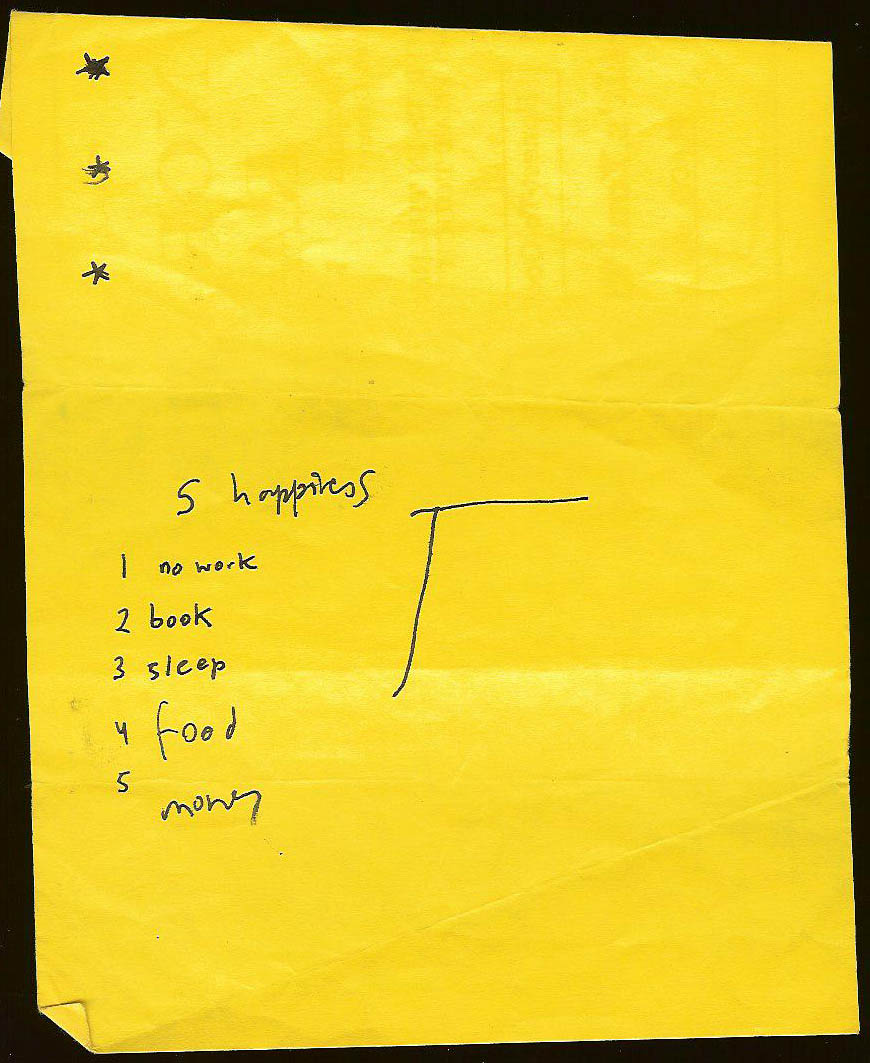 *
*
*
5 happiness
1 no work
2 book
3 sleep
4 food
5 money